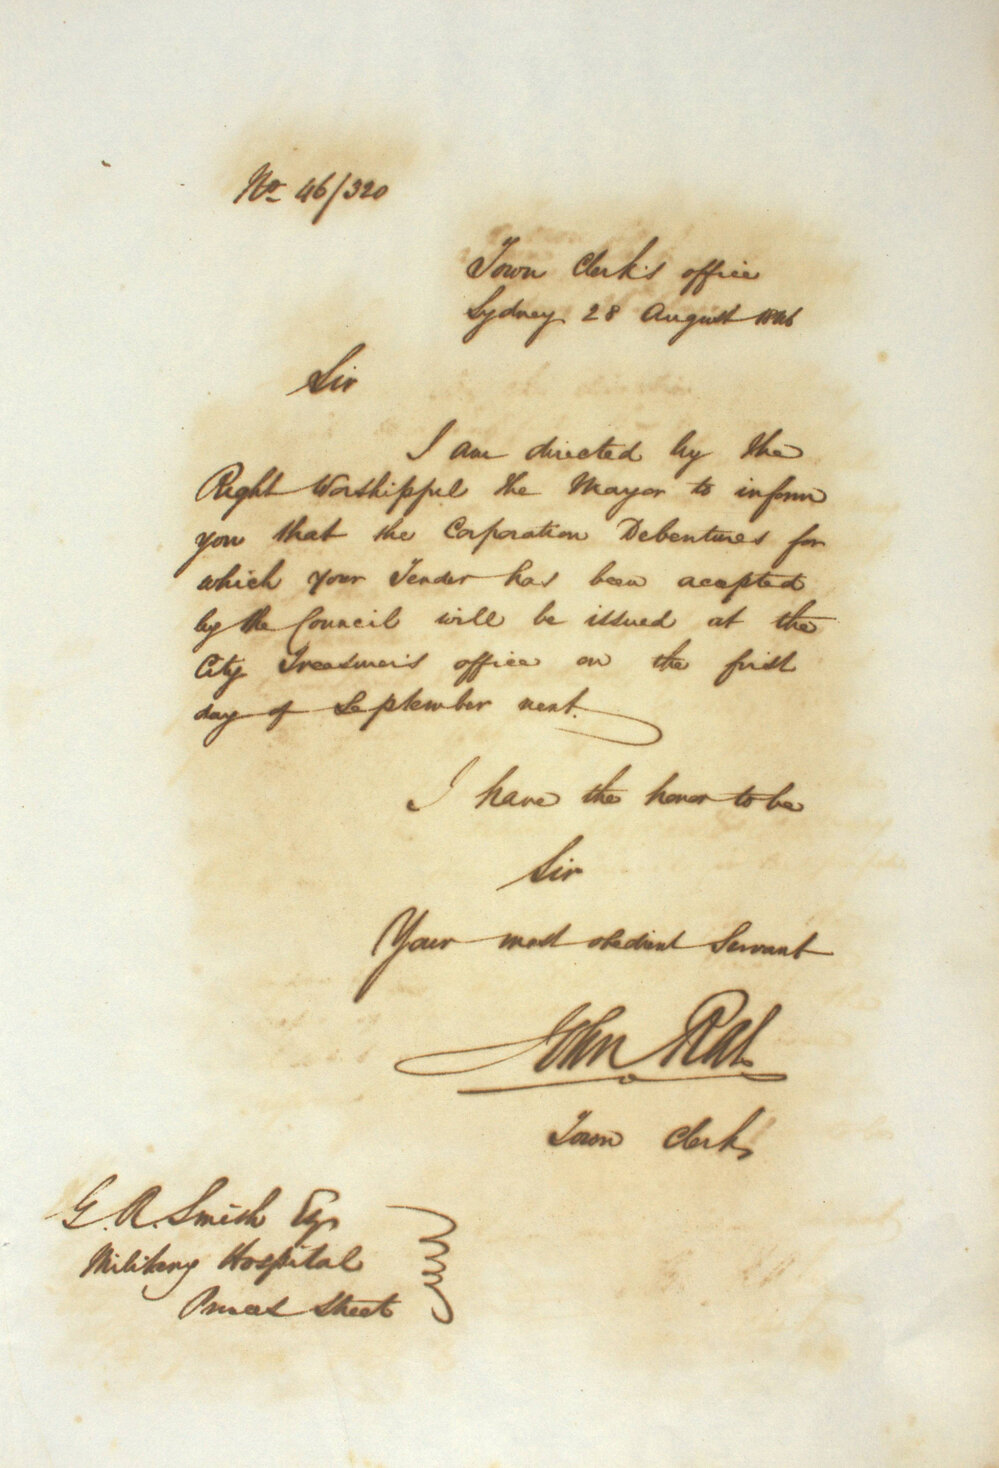 No 46/320
Town Clerk's office
Sydney 28 August 1846
Sir
I am directed by the
Right Worshipful the Mayor to inform
you that the Corporation Debentures for
which your Tender has been accepted
by the Council will be issued at the
City Treasurer's office on the first
day of September next.
I have the honor to be
Sir
Your most obedient Servant
John Rae
Town Clerk
G. A. Smith Esqr
Military Hospital
Princes Street